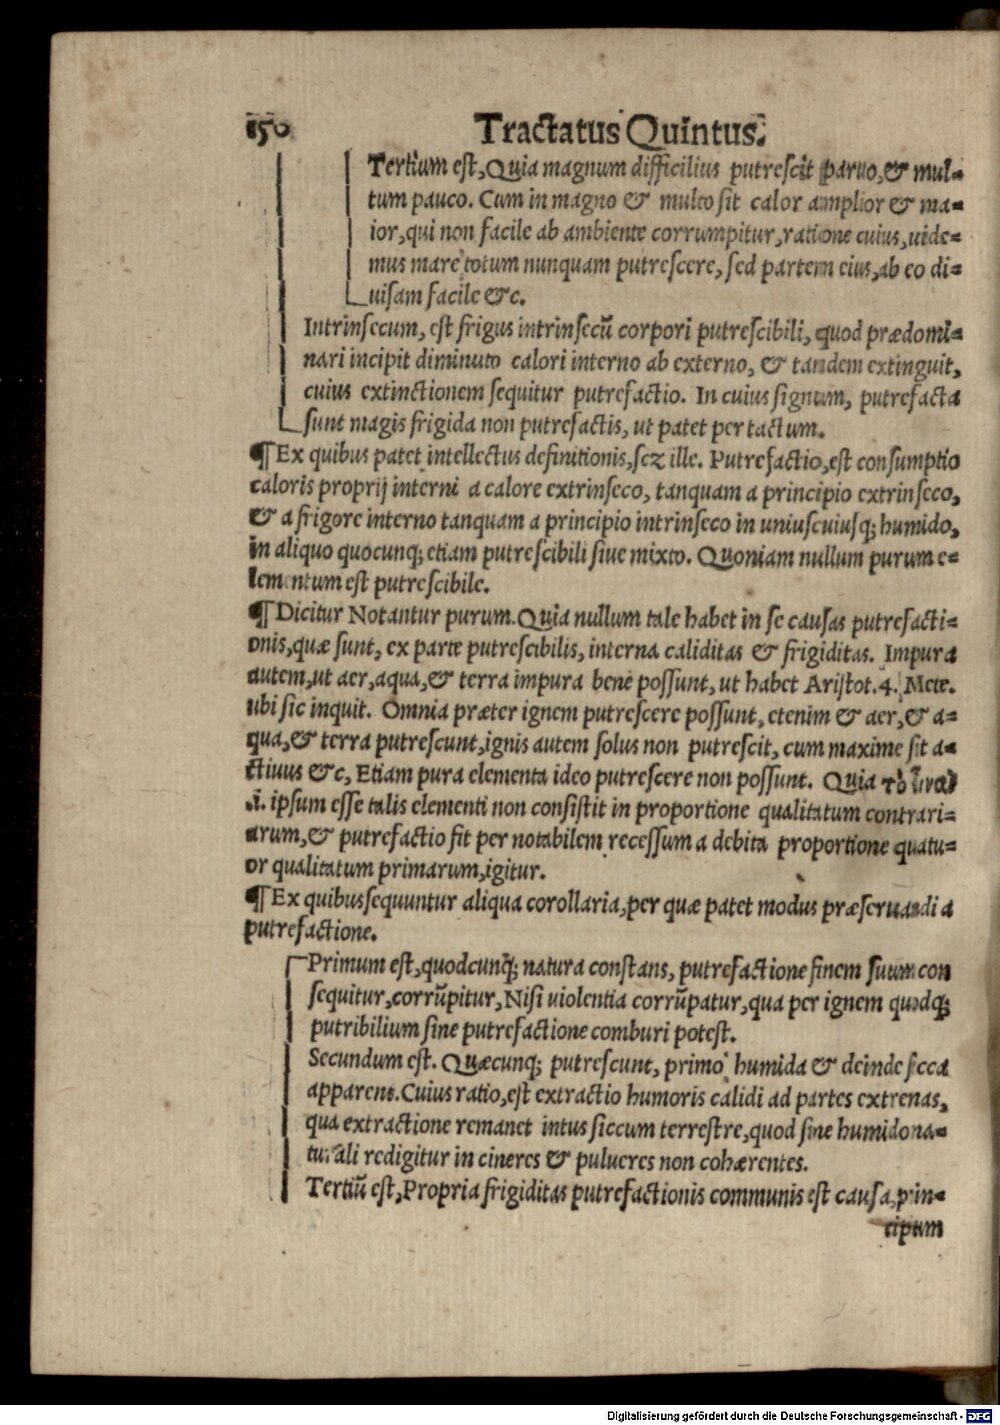 150 Tractatus Quintus.
Tertium est, Quia magnum difficilius putrescit paruo, & mul-
tum pauco. Cum in magno & multo sit calor amplior & ma-
ior, qui non facile ab ambiente corrumpitur, ratione cuius, uide-
mus mare totum nunquam putrescere, sed partem eius, ab eo di-
uisam facile &c.
Intrinsecum, est frigus intrinsecũ corpori putrescibili, quod prædomi-
nari incipit diminuto calori interno ab externo, & tandem extinguit,
cuius extinctionem sequitur putrefactio. In cuius signum, putrefacta
sunt magis frigida non putrefactis, ut patet per tactum.
¶ Ex quibus patet intellectus definitionis, scz ille. Putrefactio, est consumptio
caloris proprij interni a calore extrinseco, tanquam a principio extrinseco,
& a frigore interno tanquam a principio intrinseco in uniuscuiusq; humido,
in aliquo quocunq; etiam putrescibili siue mixto. Quoniam nullum purum e-
lementum est putrescibile.
¶ Dicitur Notantur purum. Quia nullum tale habet in se causas putrefacti-
onis, quæ sunt, ex parte putrescibilis, interna caliditas & frigiditas. Impura
autem, ut aer, aqua, & terra impura bene possunt, ut habet Aristot. 4. Mete.
ubi sic inquit. Omnia præter ignem putrescere possunt, etenim & aer, & a-
qua, & terra putrescunt, ignis autem solus non putrescit, cum maxime sit a-
ctiuus &c, Etiam pura elementa ideo putrescere non possunt. Quia τὸ
.i. ipsum esse talis elementi non consistit in proportione qualitatum contrari-
arum, & putrefactio fit per notabilem recessum a debita proportione quatu-
or qualitatum primarum, igitur.
¶ Ex quibus sequuntur aliqua corollaria, per quæ patet modus præseruandi a
putrefactione.
Primum est, quodcunq; natura constans, putrefactione finem suum con
sequitur, corrũpitur, Nisi uiolentia corrũpatur, qua per ignem quodq;
putribilium sine putrefactione comburi potest.
Secundum est. Quæcunq; putrescunt, primo humida & deinde sicca
apparent. Cuius ratio, est extractio humoris calidi ad partes extrenas,
qua extractione remanet intus siccum terrestre, quod sine humido na-
turali redigitur in cineres & pulueres non cohærentes.
Tertiũ est, Propria frigiditas putrefactionis communis est causa, prin-
cipium
Digitalisierung gefördert durch die Deutsche Forschungsgemeinschaft - DFG